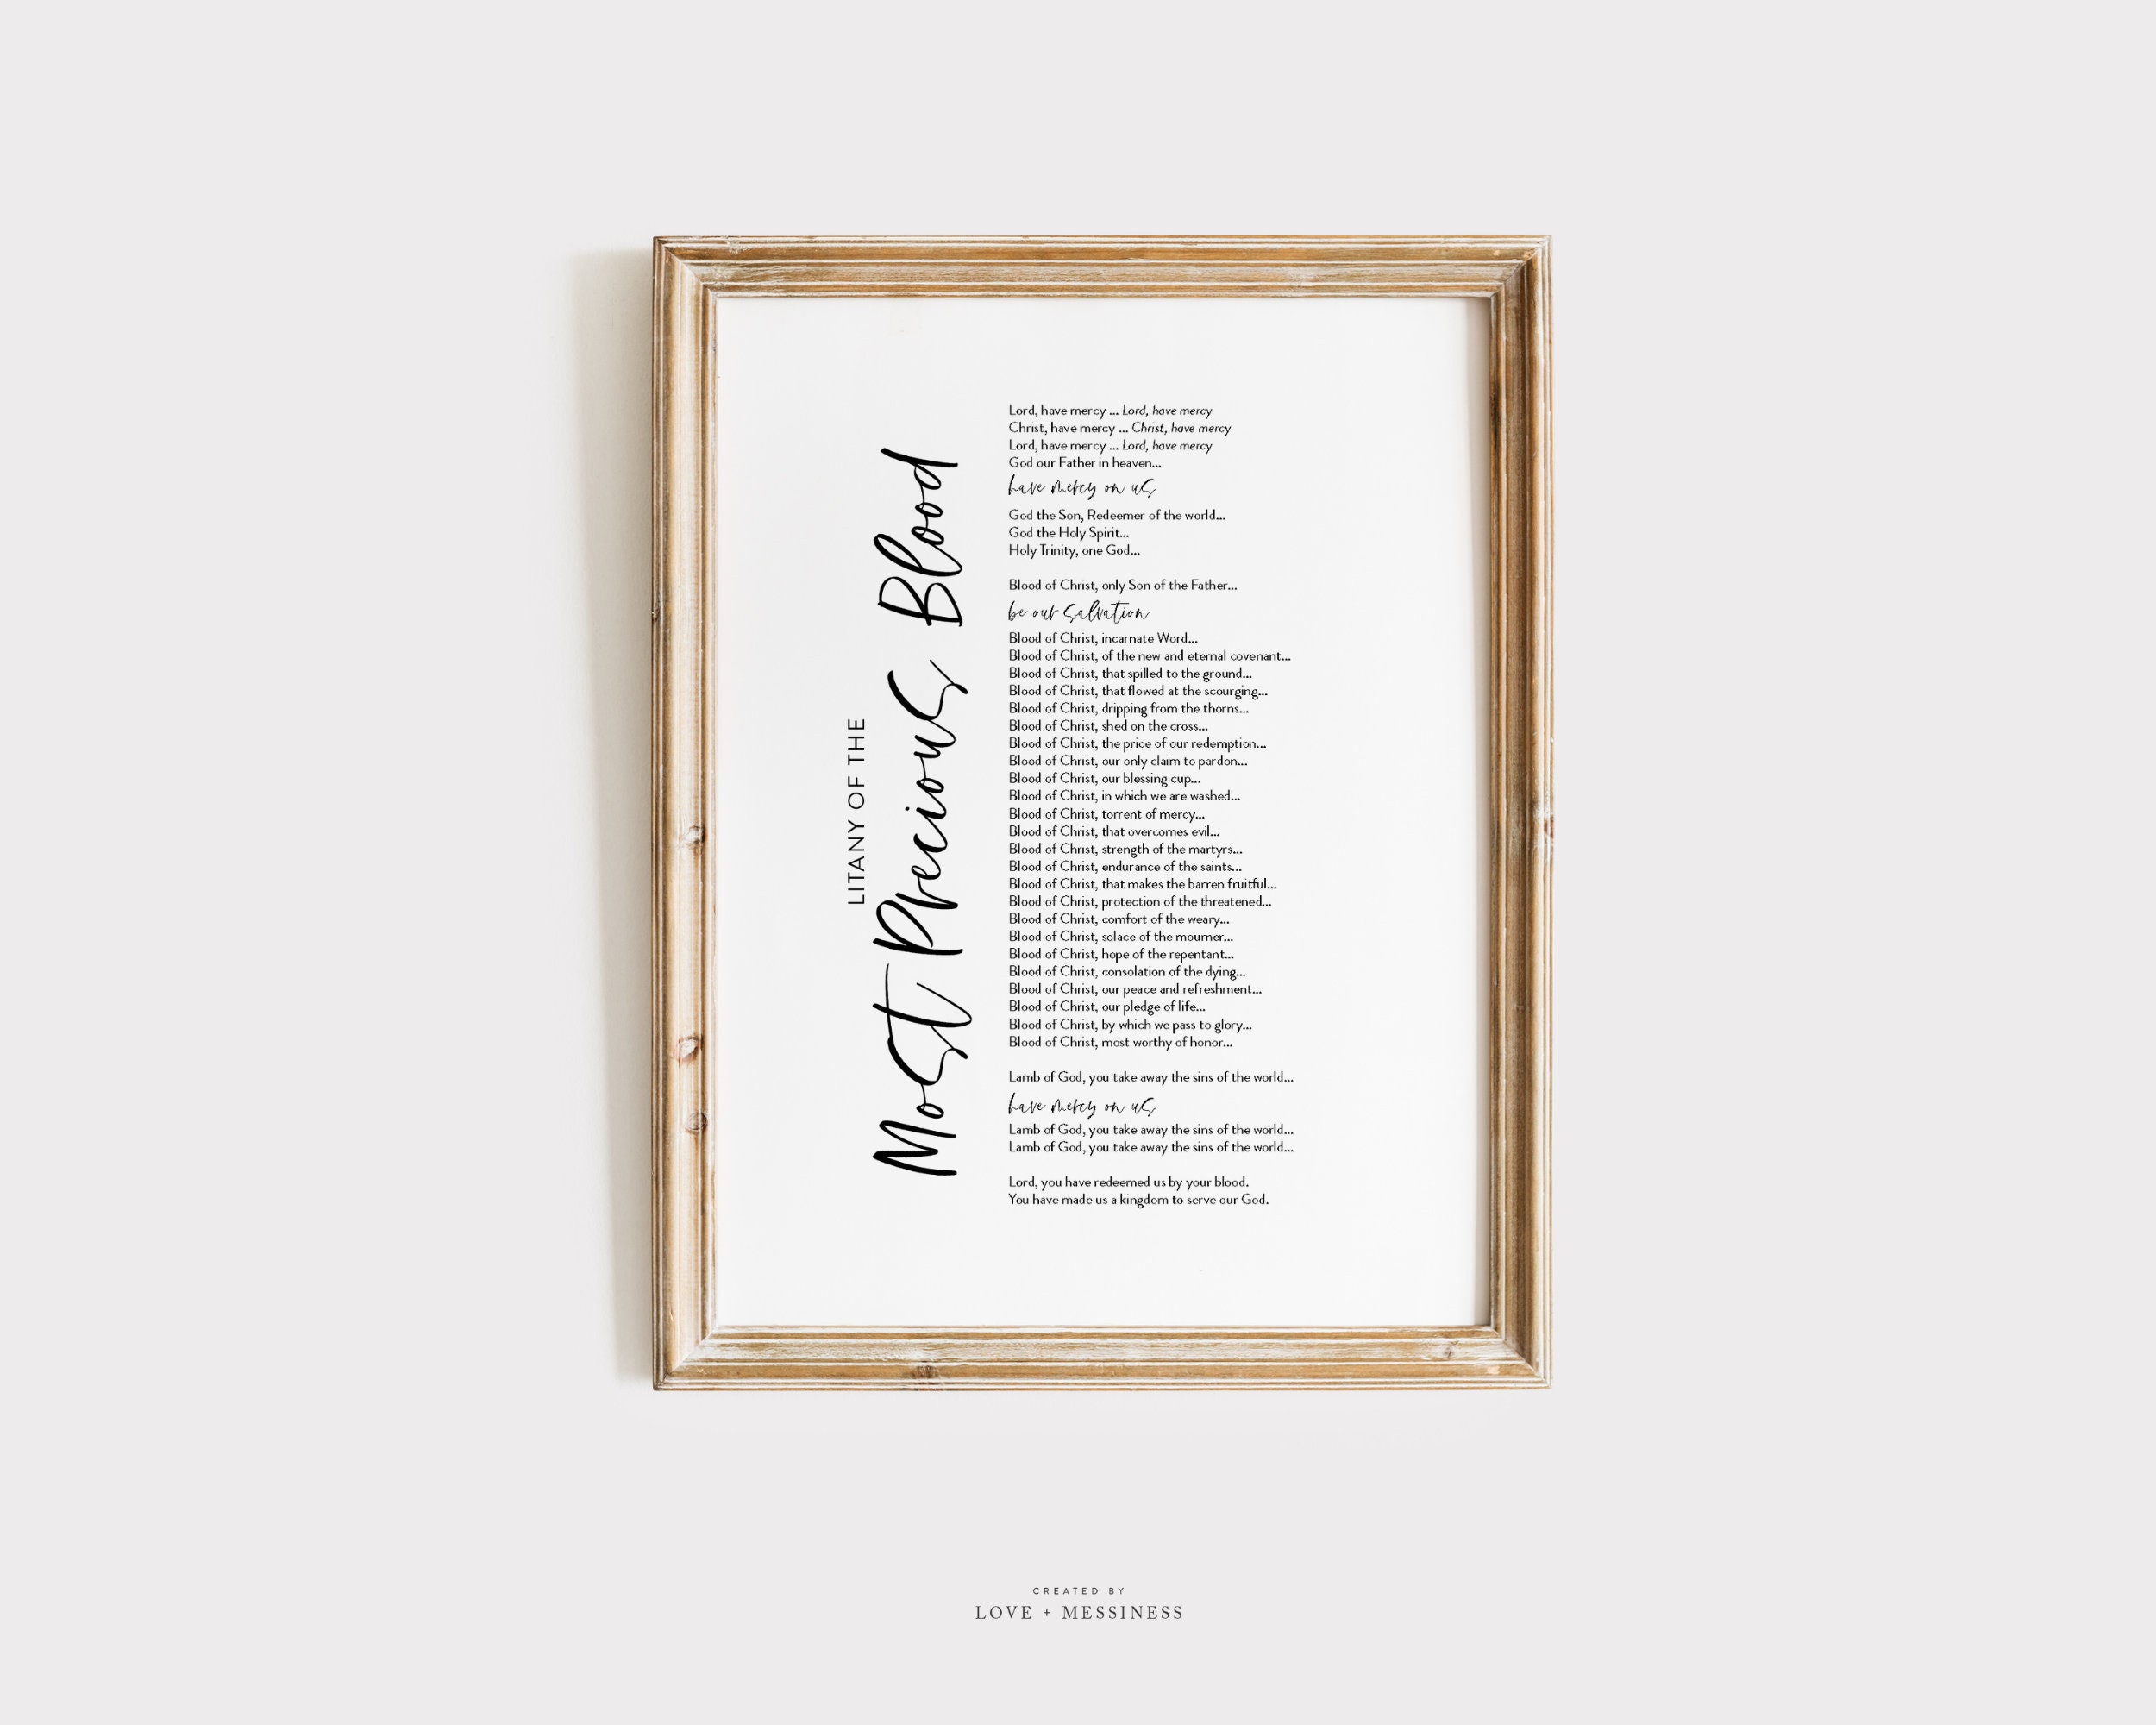 LITANY OF THE
Most Precious Blood
Lord, have mercy ... Lord, have mercy
Christ, have mercy ... Christ, have mercy
Lord, have mercy ... Lord, have mercy
God our Father in heaven...
have mercy on us
God the Son, Redeemer of the world...
God the Holy Spirit...
Holy Trinity, one God...
Blood of Christ, only Son of the Father...
be our salvation
Blood of Christ, incarnate Word...
Blood of Christ, of the new and eternal covenant...
Blood of Christ, that spilled to the ground...
Blood of Christ, that flowed at the scourging...
Blood of Christ, dripping from the thorns...
Blood of Christ, shed on the cross...
Blood of Christ, the price of our redemption...
Blood of Christ, our only claim to pardon...
Blood of Christ, our blessing cup...
Blood of Christ, in which we are washed...
Blood of Christ, torrent of mercy...
Blood of Christ, that overcomes evil...
Blood of Christ, strength of the martyrs...
Blood of Christ, endurance of the saints...
Blood of Christ, that makes the barren fruitful...
Blood of Christ, protection of the threatened...
Blood of Christ, comfort of the weary...
Blood of Christ, solace of the mourner...
Blood of Christ, hope of the repentant...
Blood of Christ, consolation of the dying...
Blood of Christ, our peace and refreshment...
Blood of Christ, our pledge of life...
Blood of Christ, by which we pass to glory...
Blood of Christ, most worthy of honor...
Lamb of God, you take away the sins of the world...
have mercy on us
Lamb of God, you take away the sins of the world...
Lamb of God, you take away the sins of the world...
Lord, you have redeemed us by your blood.
You have made us a kingdom to serve our God.
CREATED BY
LOVE + MESSINESS